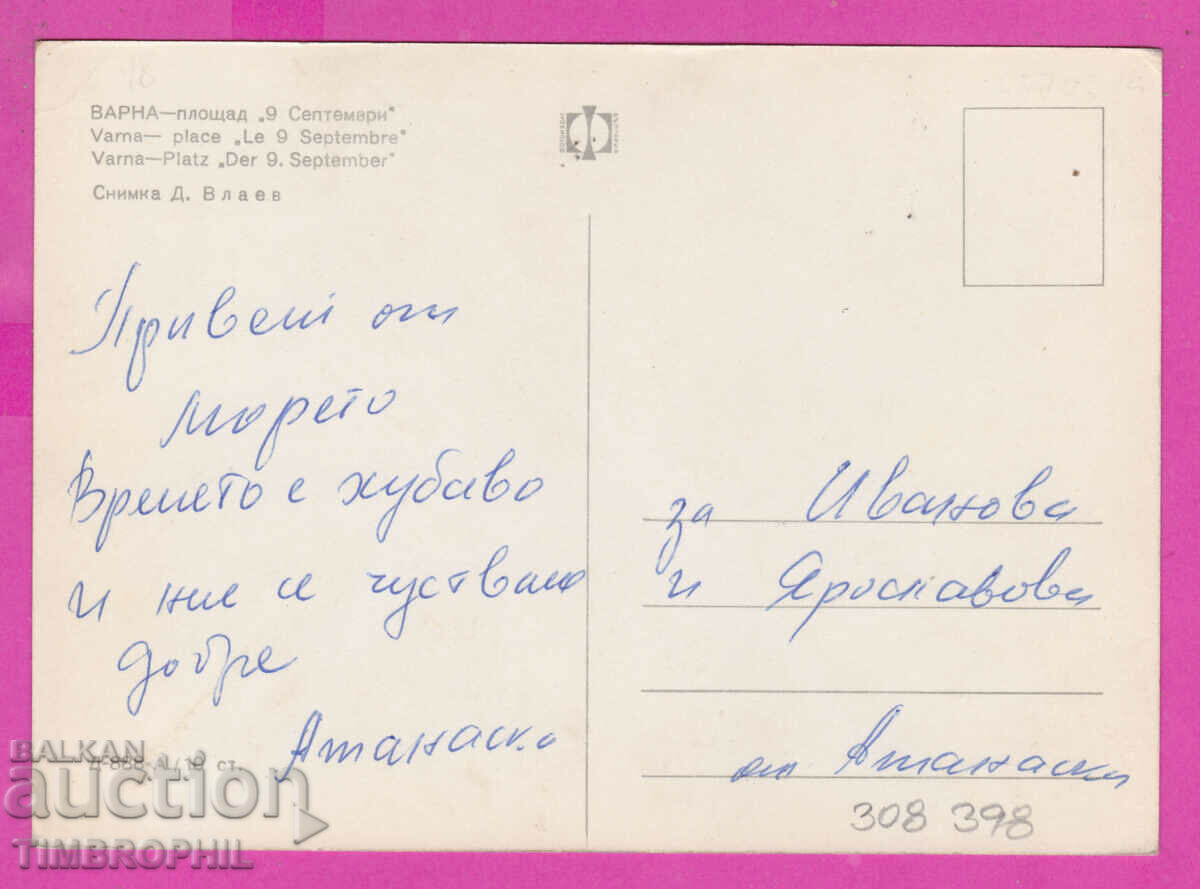 ВАРНА—площад „9 Септември"
Varna— place „Le 9 Septembre"
Varna—Platz „Der 9. September"
Снимка Д. Влаев
Привет от
морето
Времето е хубаво
и ние се чуствама
добре
Атанаска
за Иванова
и Ярославова
от Атанаска
308 398
BALKAN
auction
TIMBROPHIL